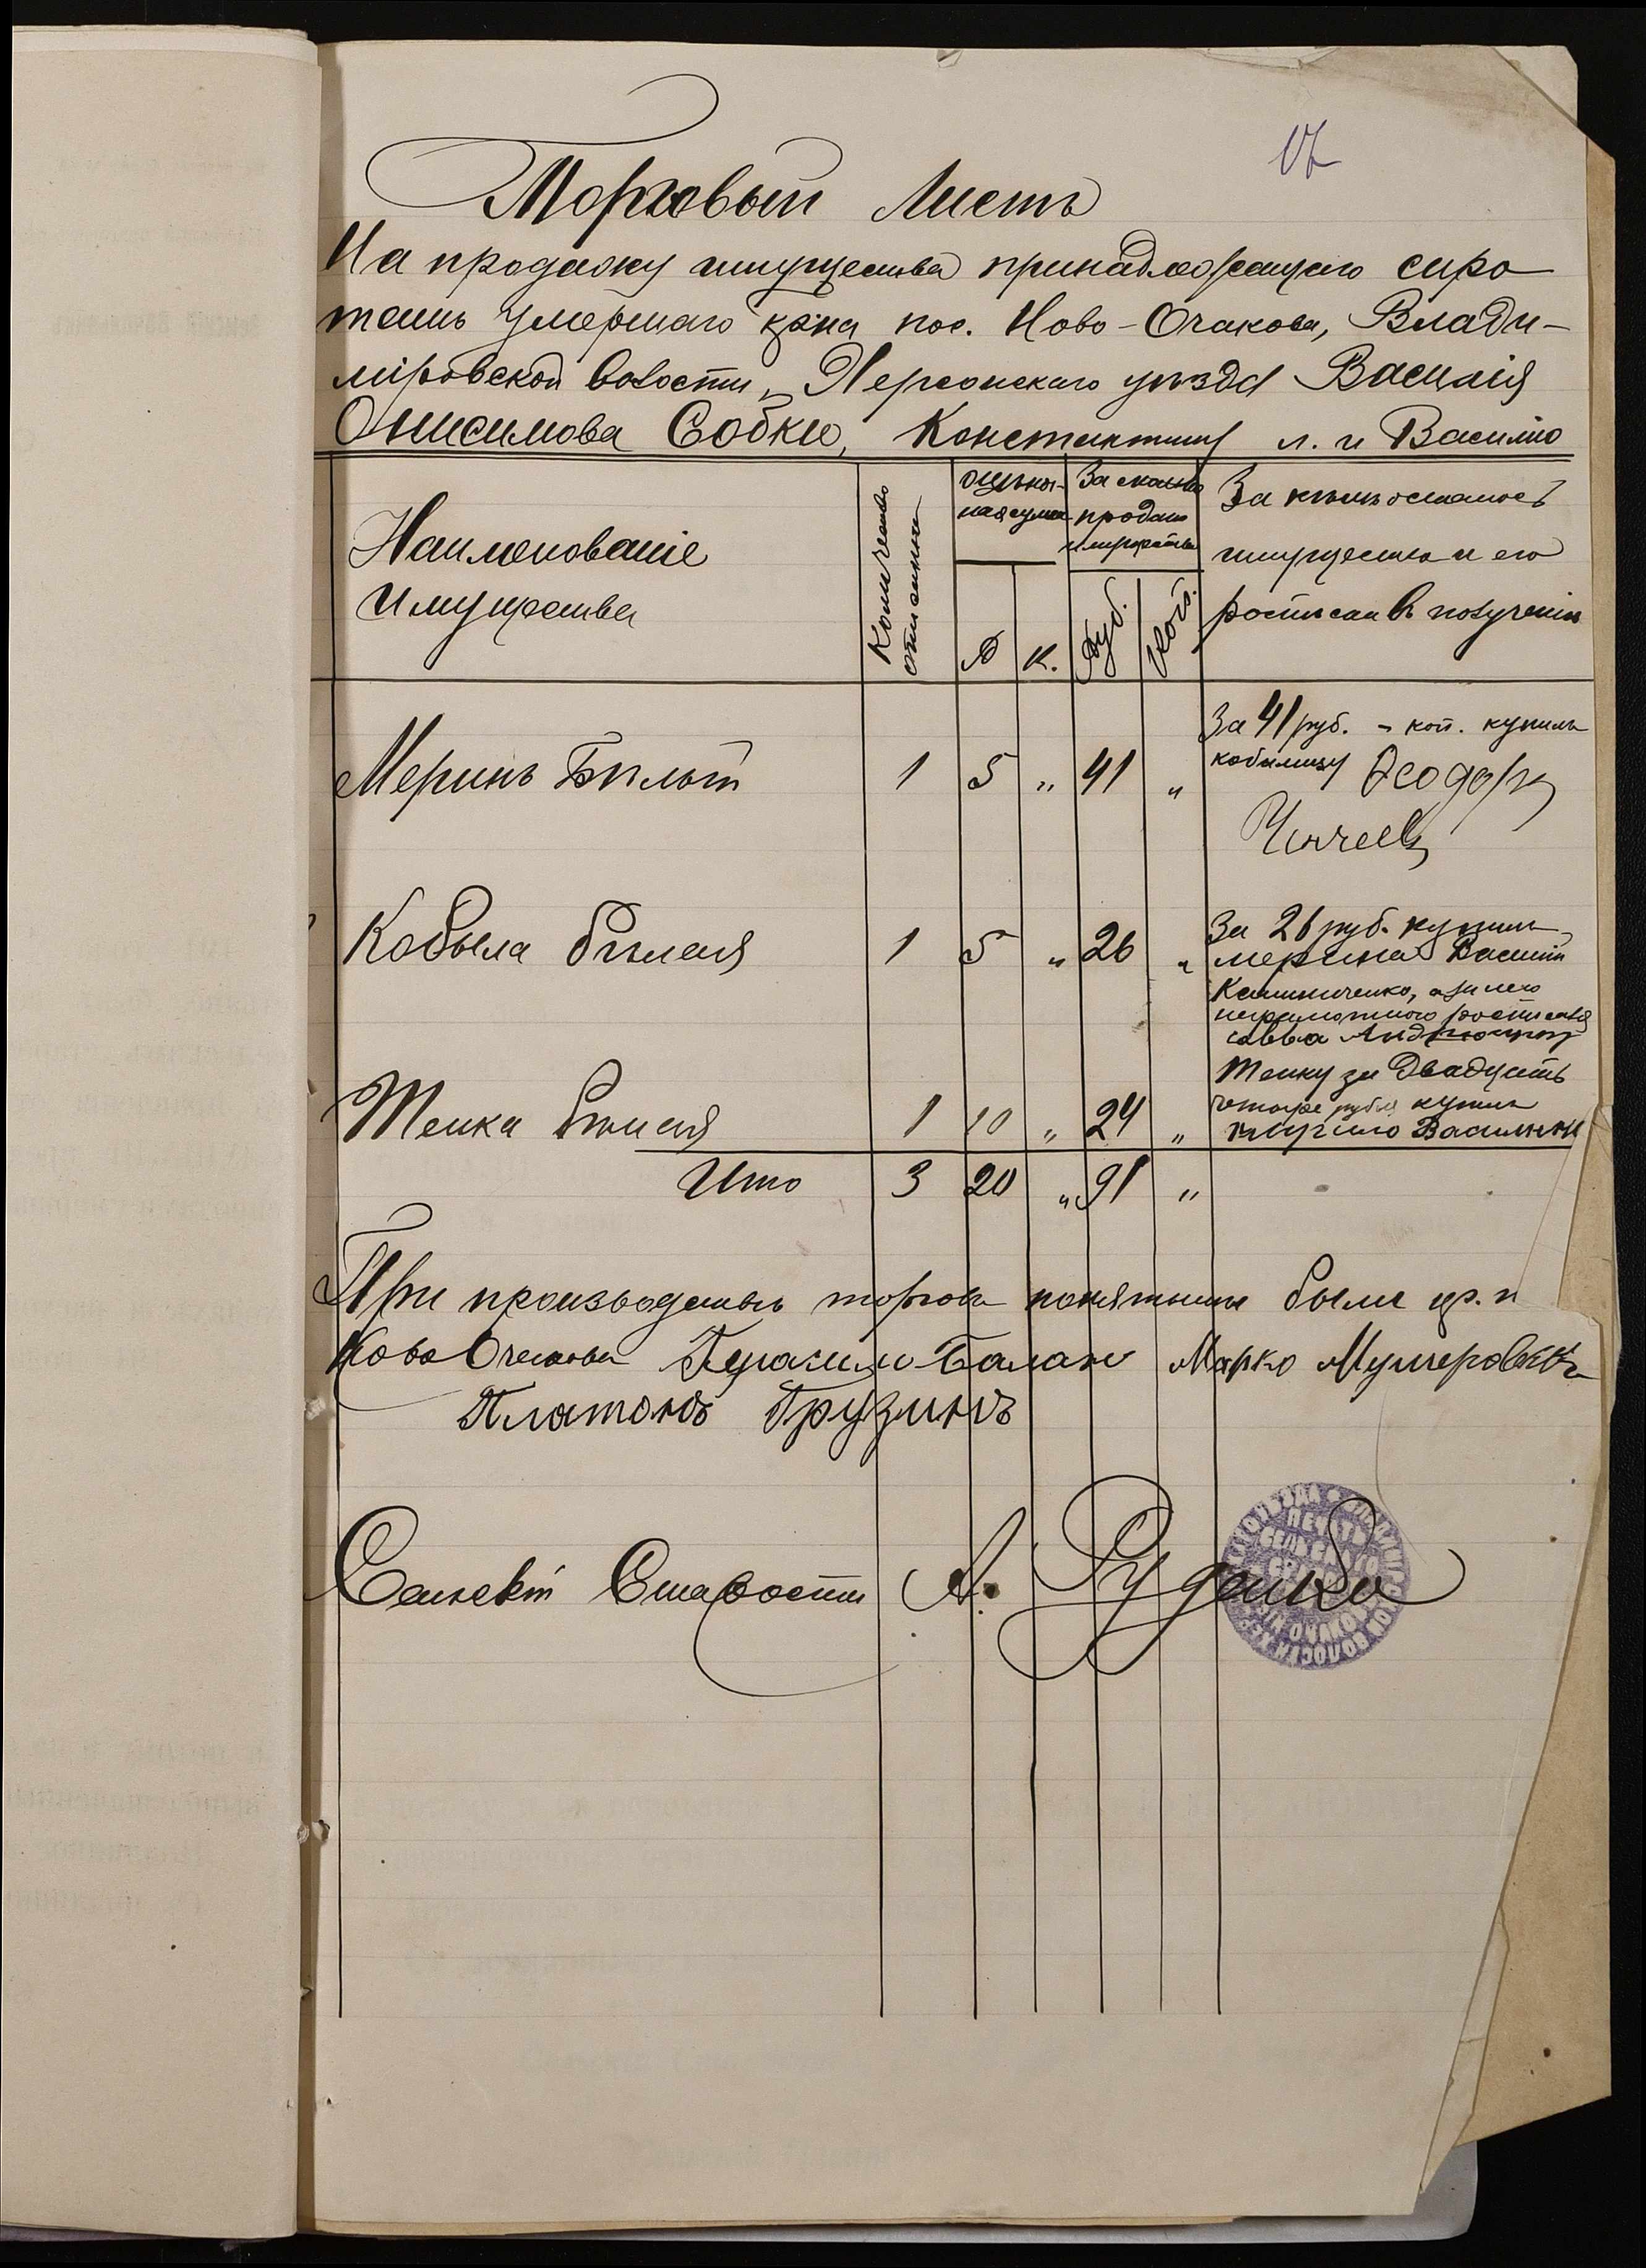 17
Торговый Листъ
На продажу имущества принадлежащаго сиро
тамъ умершаго кр-на пос. Ново-Очакова, Влади-
мiровской волости, Херсонскаго уѣзда Василiя
Онисимова Собки, Константину л. и Василию
Наименованiе
имущества
Количество
описанных
оцѣноч-
ная сумма
Р
К.
За сколько
продано
имущество
Руб.
Коп.
За кѣмъ осталось
имущество и его
росписка в получении
Меринъ Бѣлый 1 5 " 41 "
За 41 руб. - коп. купилъ
кобылицу Феодоръ
Кобыла бѣлая 1 5 " 26 "
За 26 руб. купилъ
мерина Василiй
Калиниченко, а за него
неграмотного росписался
Савва
Телка Рыжая 1 10 " 24 "
Телку за Двадцать
четыре рубля купилъ
Кирило Василюк
Итого 3 20 " 91 "
При производствѣ торгов понятыми были кр. п
Ново Очакова Герасим Балан Марко
Платонъ Грузинъ
Сельскiй Староста А. Руденко
ПЕЧАТЬ
СЕЛЬСКАГО